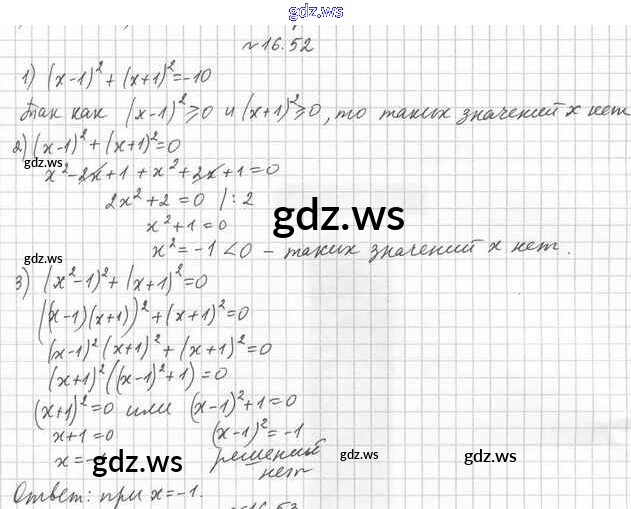 gdz.ws
№16.52
1) (x-1)²+(x+1)²=-10
Так как (x-1)²⩾0 и (x+1)²⩾0, то таких значений x нет
2) (x-1)²+(x+1)²=0
gdz.ws
x²-2x+1+x²+2x+1=0
2x²+2=0 |:2
gdz.ws
x²+1=0
x²=-1<0 - таких значений x нет.
gdz.ws
3) (x²-1)²+(x+1)²=0
((x-1)(x+1))²+(x+1)²=0
(x-1)²(x+1)²+(x+1)²=0
(x+1)²((x-1)²+1)=0
(x+1)²=0 или (x-1)²+1=0
x+1=0 (x-1)²=-1
x=-1 решений
gdz.ws gdz.ws gdz.ws
нет
Ответ: при x=-1.
gdz.ws
№16.53